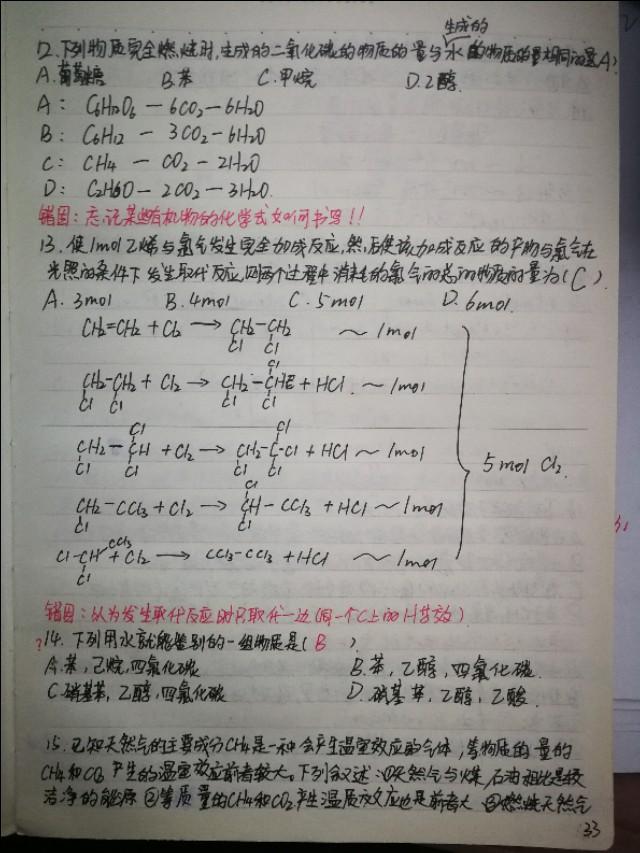 生成的
12.下列物质完全燃烧时,生成的二氧化碳的物质的量与水的物质的量相同的是A)
A.葡萄糖 B.苯 C.甲烷 D.乙醇.
A: C6H12O6 — 6CO2 — 6H2O
B: C6H12 — 3CO2 — 6H2O
C: CH4 — CO2 — 2H2O
D: C2H6O — 2CO2 — 3H2O.
错因:忘记某些有机物的化学式如何书写!!
13.使1mol乙烯与氯气发生完全加成反应,然后使该加成反应的产物与氯气在
光照的条件下发生取代反应,则两个过程中消耗的氯气的总的物质的量为(C)
A. 3mol B. 4mol C. 5mol D. 6mol.
CH2=CH2 + Cl2 → CH2-CH2 ~ 1mol
Cl Cl
Cl
CH2-CH2 + Cl2 → CH2-CH + HCl ~ 1mol
Cl Cl Cl Cl
Cl Cl
CH2-CH + Cl2 → CH2-C-Cl + HCl ~ 1mol
Cl Cl Cl Cl
5mol Cl2.
Cl
CH2-CCl3 + Cl2 → CH-CCl3 + HCl ~ 1mol
Cl Cl
CCl3
Cl-CH + Cl2 → CCl3-CCl3 + HCl ~ 1mol
Cl
错因:以为发生取代反应时只取代一边(同一个C上的H等效)
?14.下列用水就能鉴别的一组物质是(B).
A.苯,己烷,四氯化碳 B.苯,乙醇,四氯化碳.
C.硝基苯,乙醇,四氯化碳 D.硝基苯,乙醇,乙酸.
15.已知天然气的主要成分CH4是一种会产生温室效应的气体,等物质的量的
CH4和CO2产生的温室效应前者较大。下列叙述:①天然气与煤,石油相比是较
洁净的能源 ②等质量的CH4和CO2产生温室效应也是前者大 ③燃烧天然气
33